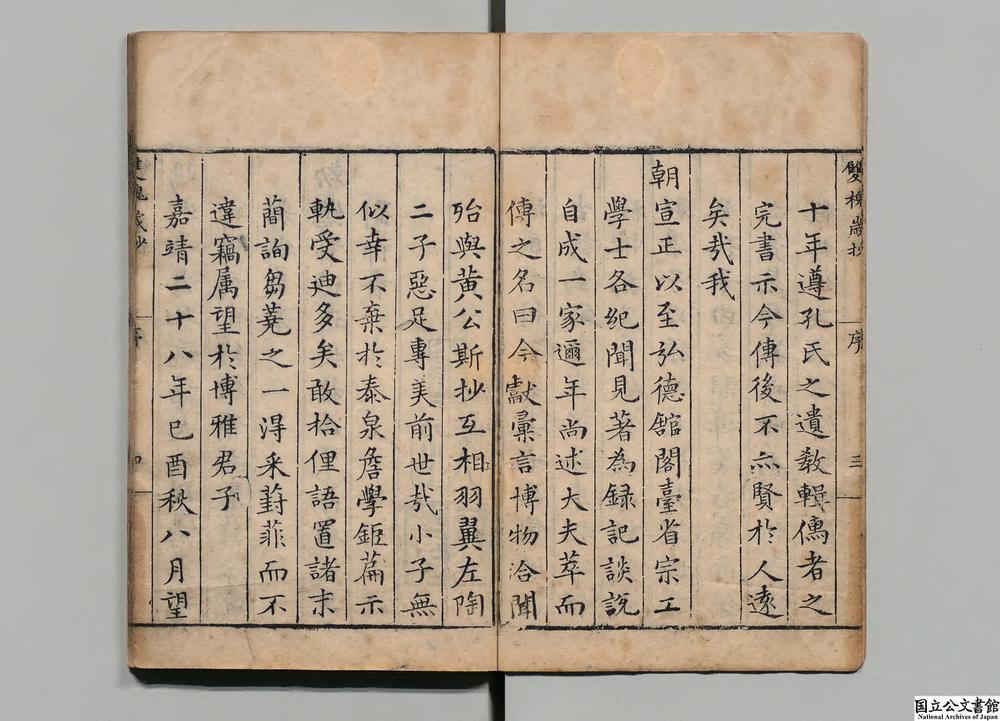 雙槐歲抄
序
三
十年遵孔氏之遺教輯儒者之
完書示今傳後不亦賢於人遠
矣哉我
朝宣正以至弘德館閣臺省宗工
學士各紀聞見著為録記談說
自成一家邇年尚述大夫萃而
傳之名曰今獻彙言博物洽聞
殆與黄公斯抄互相羽翼左陶
二子惡足專美前世哉小子無
似幸不棄於泰泉詹學鉅篇示
軌受迪多矣敢拾俚語置諸末
蕑詢芻蕘之一淂采葑菲而不
違竊属望於博雅君子
嘉靖二十八年已酉秋八月望
雙槐歲抄
序
四
国立公文書館
National Archives of Japan